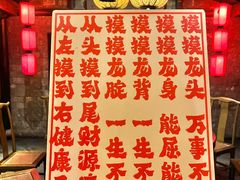 摸摸龙头 万事不
摸摸龙身 能屈能
摸摸龙背 一生不
摸摸龙腚 一生不
从头摸到尾财源
从左摸到右健康